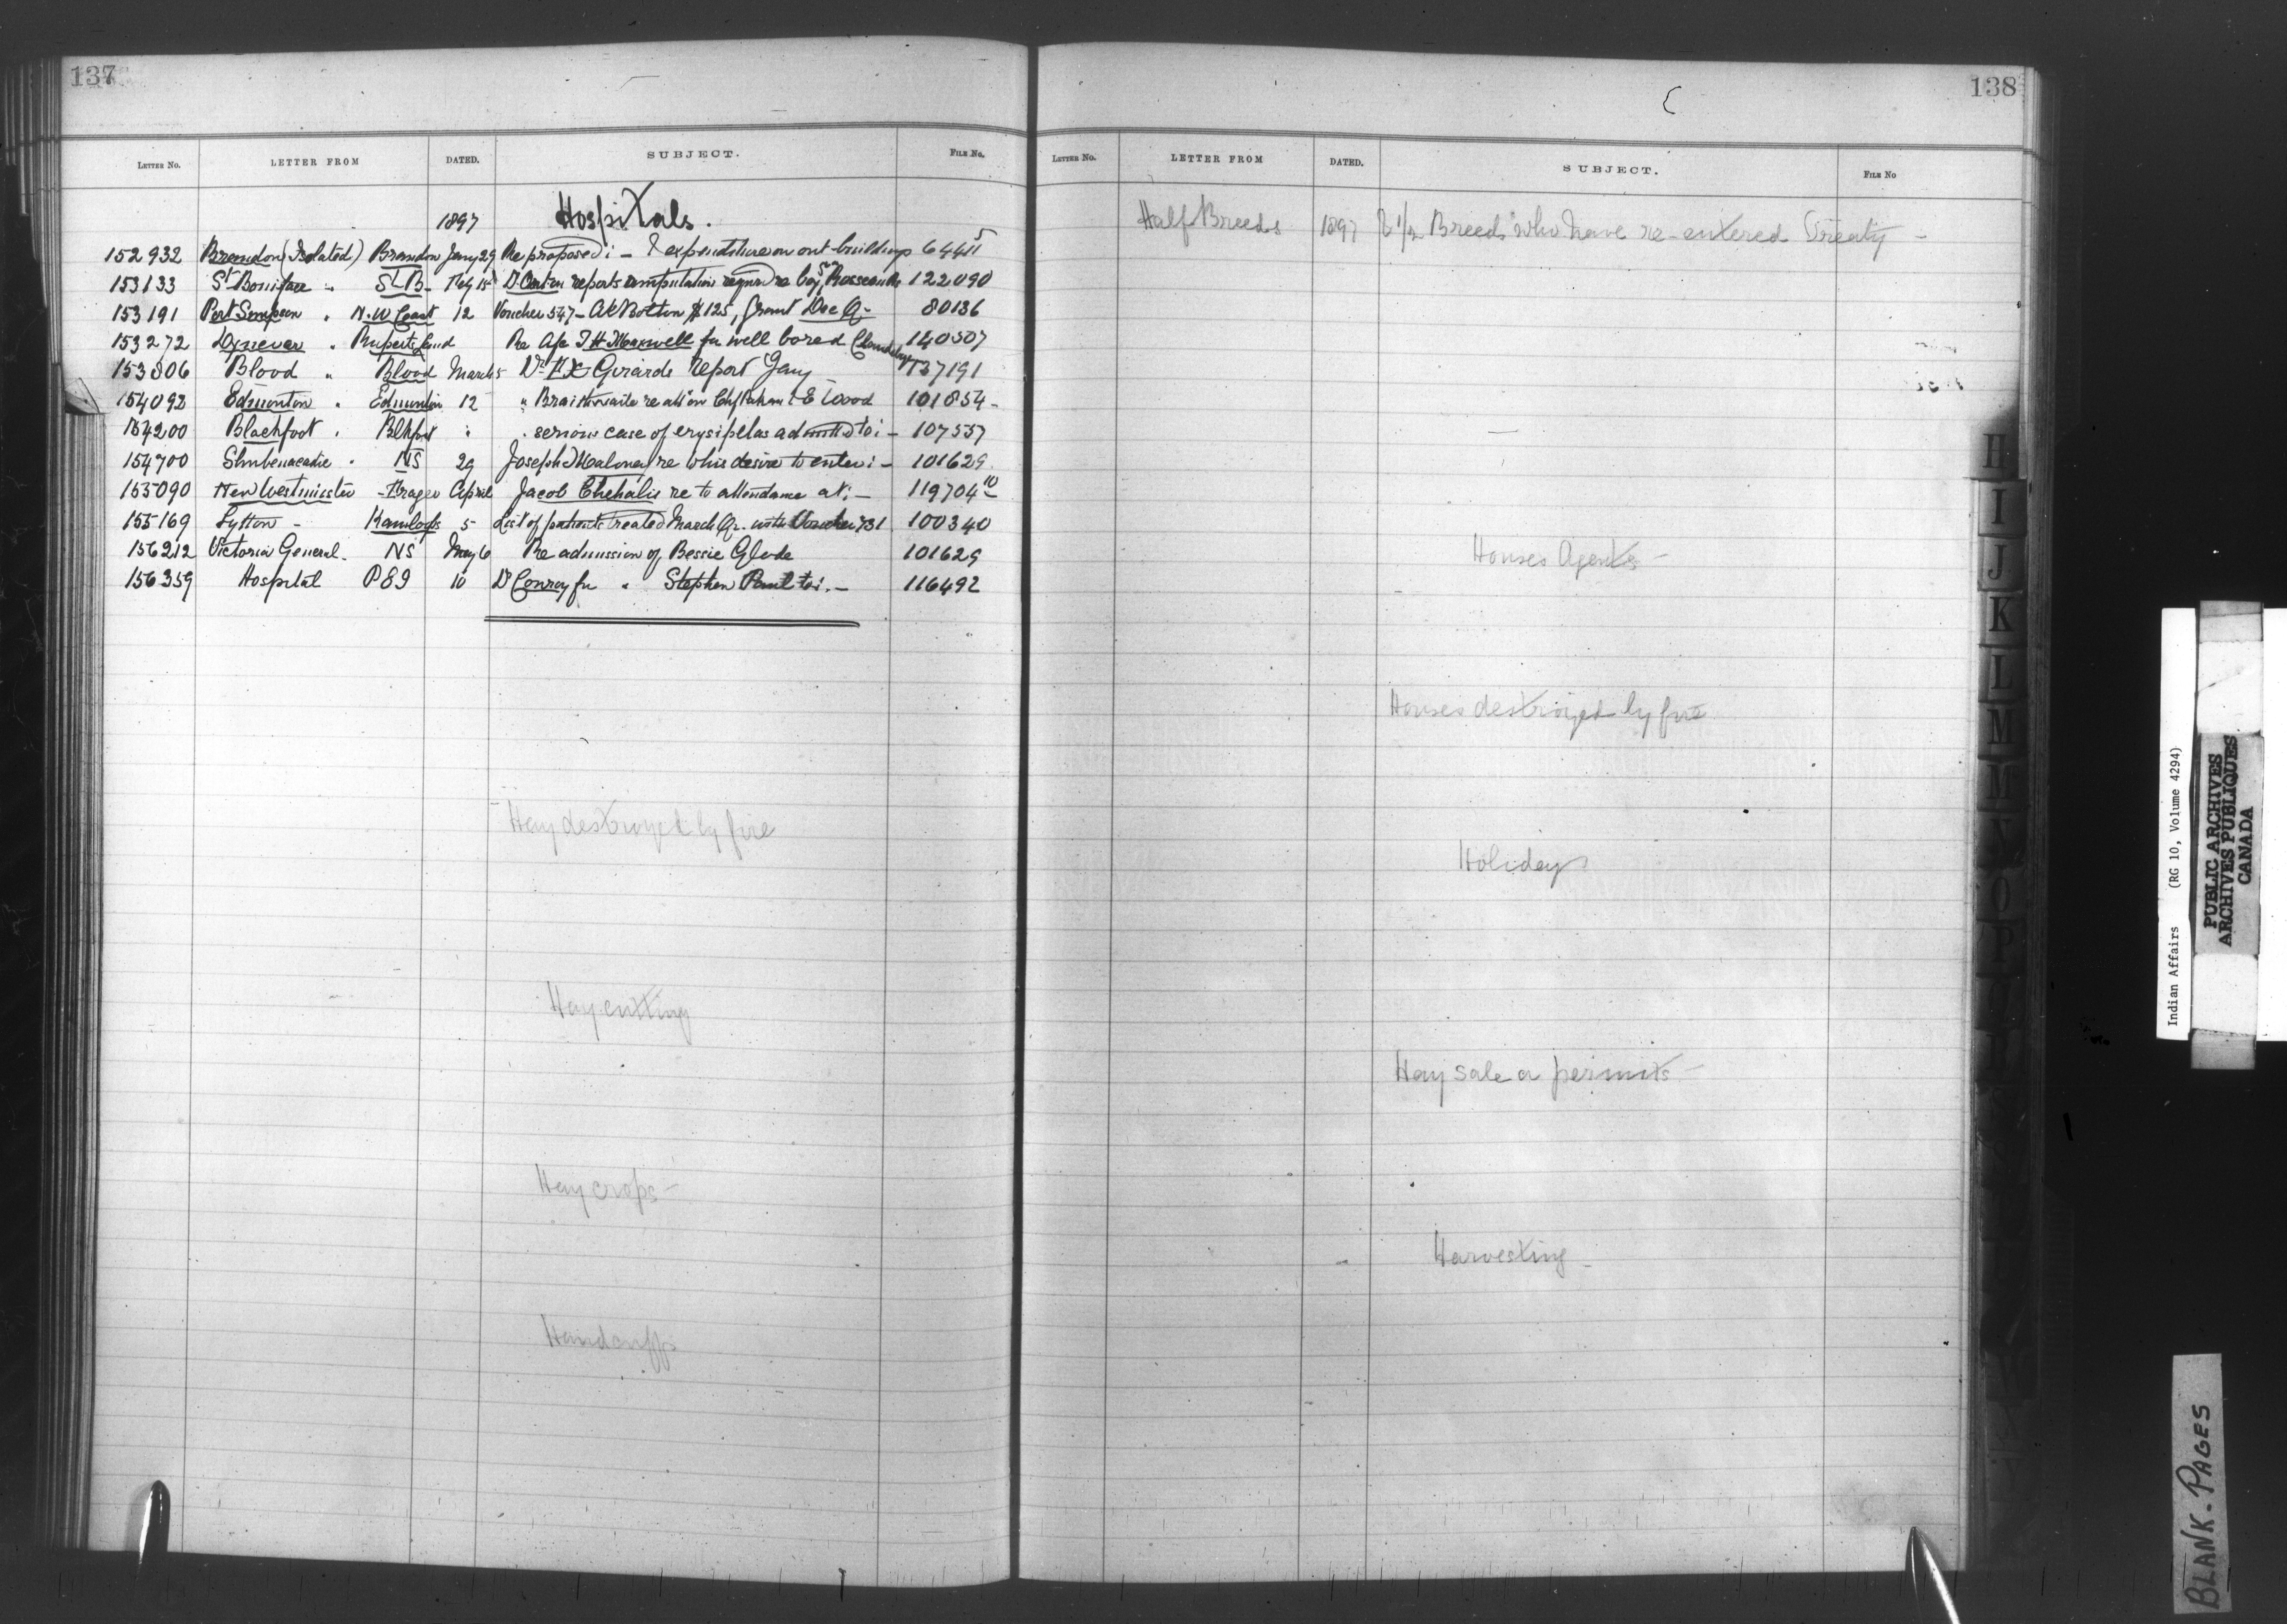 137
LETTER No. LETTER FROM DATED. SUBJECT. FILE No.
1897 Hospitals.
152932 Brandon (Isolated) Brandon Jany 29 Re proposed :- & expenditure on out-buildings 64411 5
153133 St Boniface " St B- Feby 15 Dr reports amputation re boy 122090
153191 Port Simpson " N.W Coast 12 Voucher 547- A E Bolton $125, Grant Dec Qr 80136
153272 Dynevor " Ruperts Land Re a/c J H Maxwell for well bored 140507
153806 Blood " Blood March 5 Dr F X Girards report Jany 137191
154092 Edmonton " Edmonton 12 " Braithwaite re E Wood 101854-
154200 Blackfoot " Blkfoot " " serious case of erysipelas admitted to :- 107537
154700 Shubenacadie " NS 29 Joseph Maloney re his desire to enter :- 101629
155090 New Westminster - Fraser April Jacob Chehalis re to attendance at :- 119704 10
155169 Lytton - Kamloops 5- List of patients treated March Qr. with Voucher 731 100340
156212 Victoria General - NS May 6 Re admission of Bessie Glode 101629
156359 Hospital P E I 10 Dr Conroy for " Stephen Paul to :- 116492
Hay destroyed by fire
Hay cutting
Hay crops -
Handcuffs
138
LETTER No. LETTER FROM DATED. SUBJECT. FILE No
Half Breeds 1897 1/2 Breeds who have re-entered Treaty -
Houses Agents -
Houses destroyed by fire
Holidays
Hay sale or permits -
Harvesting -
H
I
J
K
L
M
M
N
O
P
Indian Affairs (RG 10, Volume 4294)
PUBLIC ARCHIVES
ARCHIVES PUBLIQUES
CANADA
BLANK. PAGES